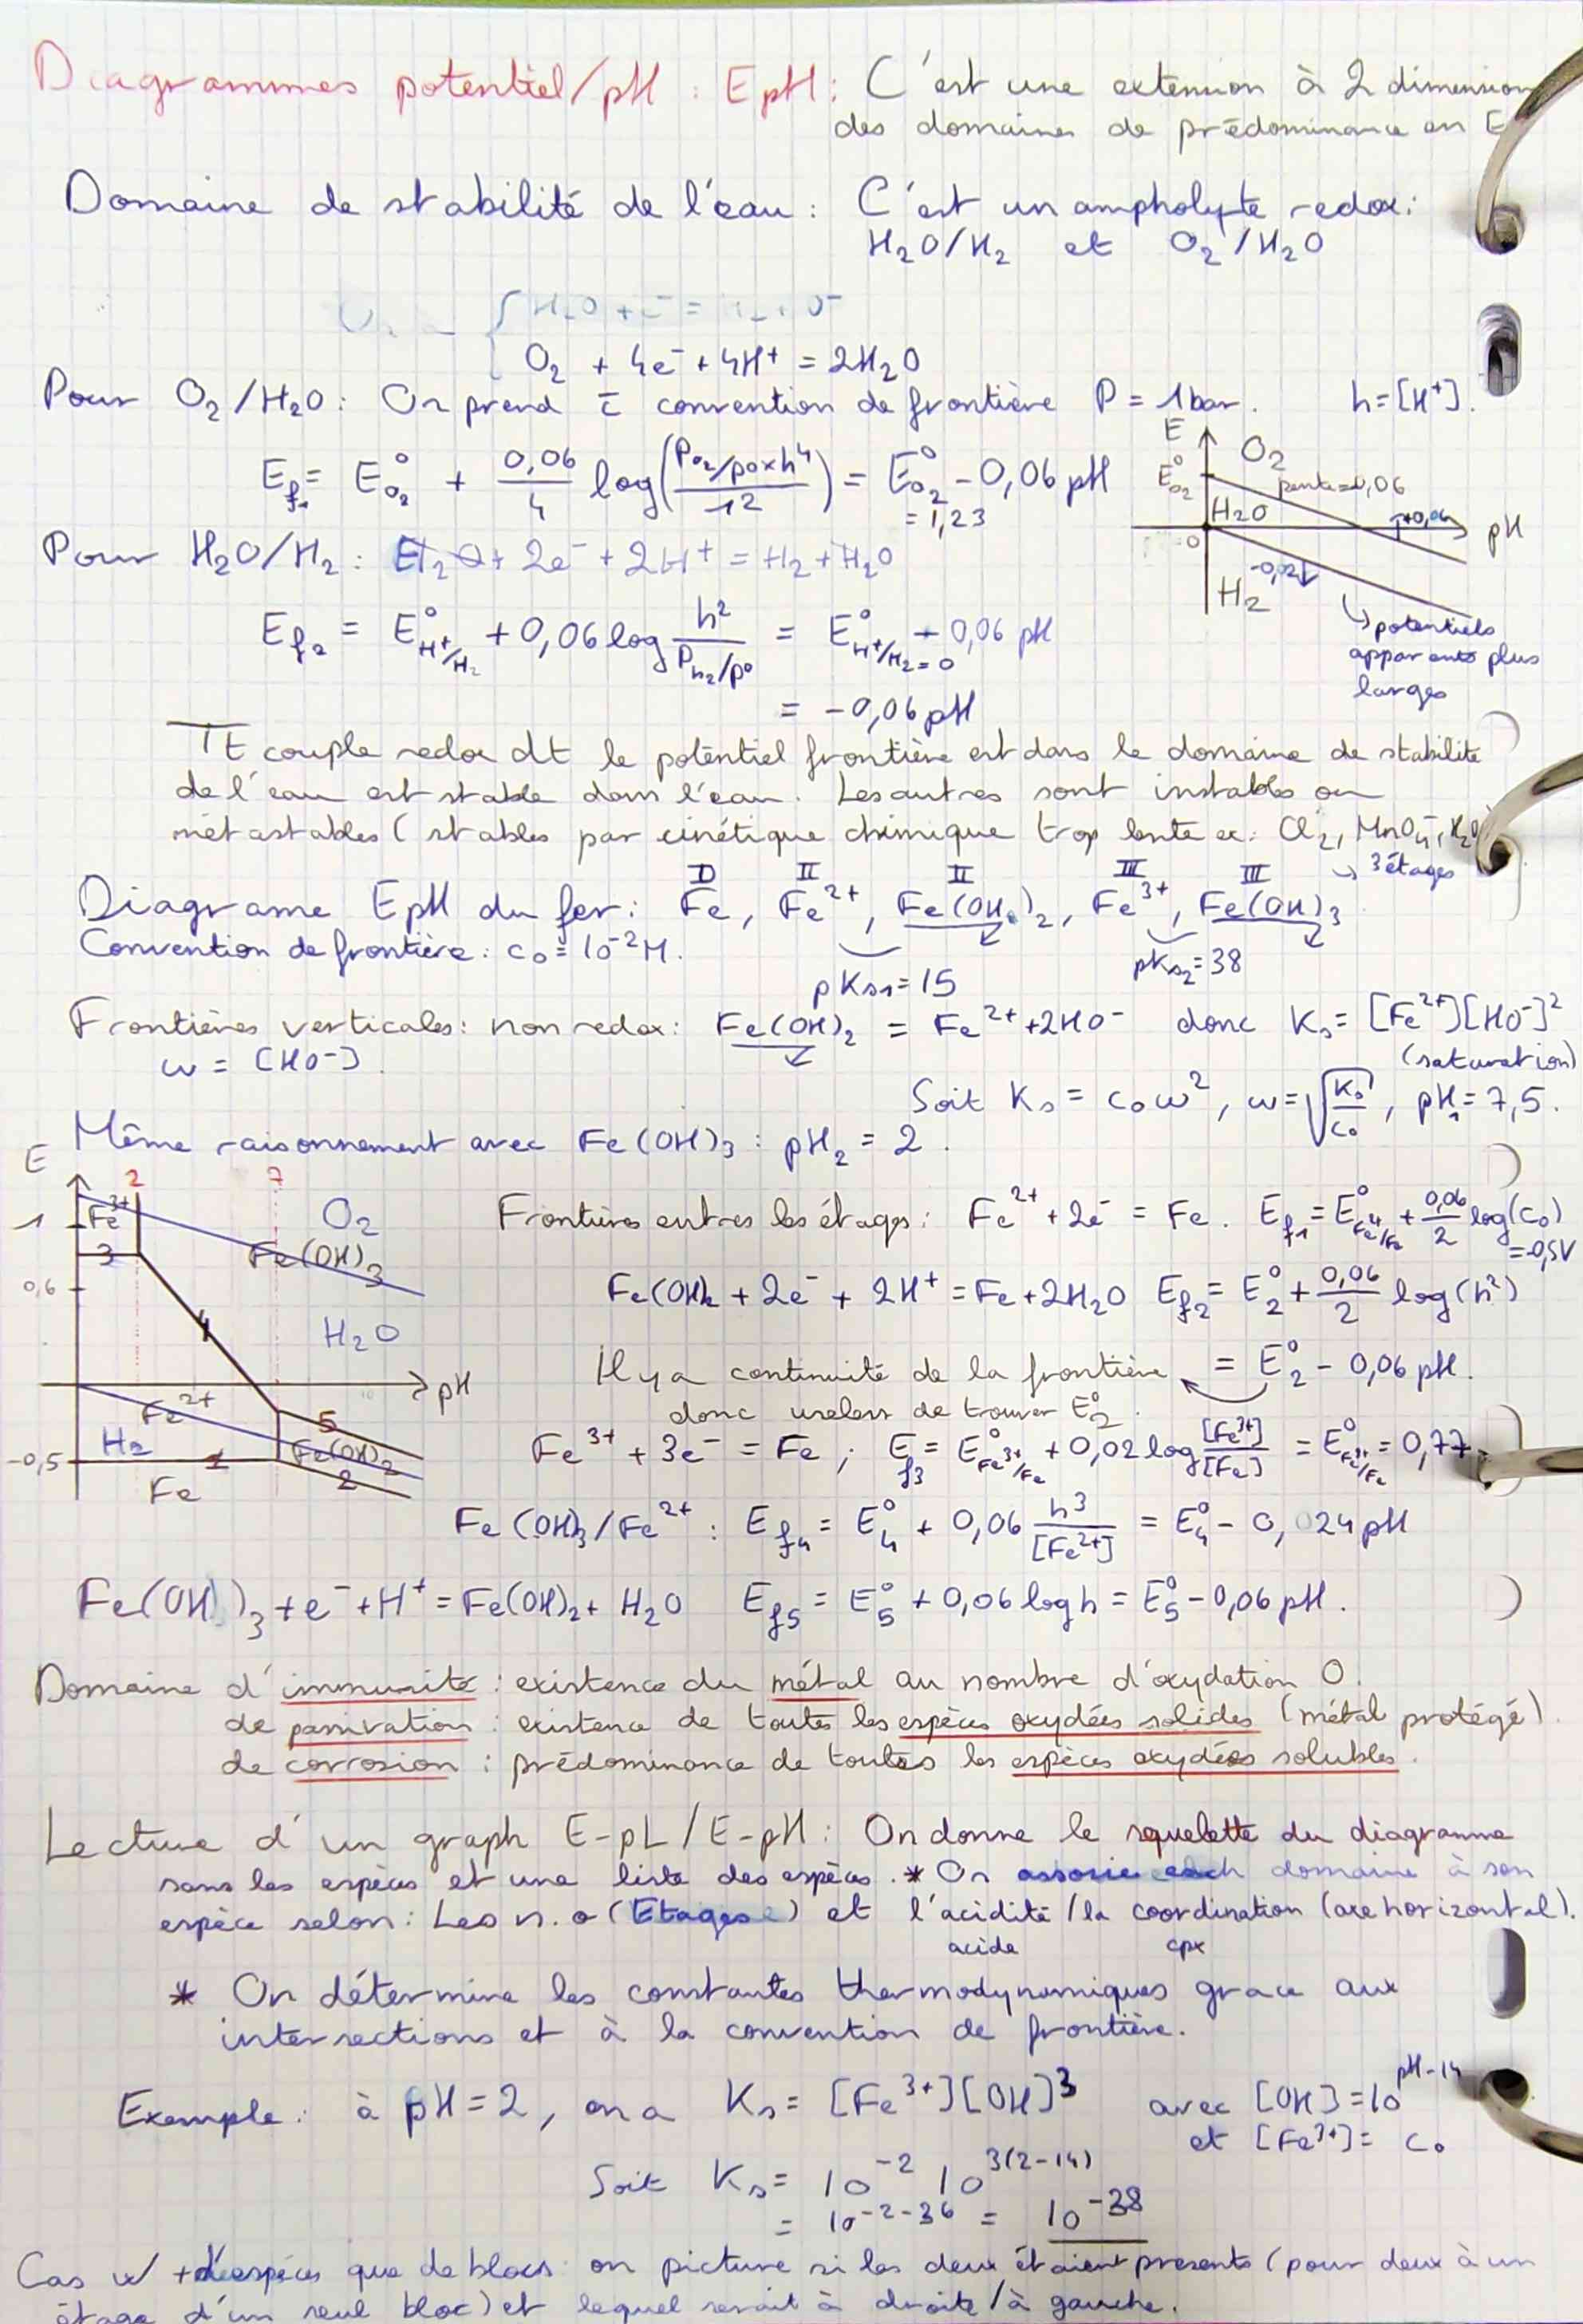 Diagrammes potentiel/pH : EpH : C'est une extension à 2 dimensions
des domaines de prédominance en E
Domaine de stabilité de l'eau : C'est un ampholyte redox :
H₂O/H₂ et O₂/H₂O
O₂ + 4e⁻ + 4H⁺ = 2H₂O
Pour O₂/H₂O : On prend convention de frontière P = 1 bar. h = [H⁺].
E_f1 = E°_O₂ + 0,06/4 log((P_O₂/p° × h⁴)/1²) = E°_O₂ - 0,06 pH
= 1,23
E
E°_O₂
O₂
pente = -0,06
H₂O
pH
0
H₂
→ potentiels
apparents plus
larges
Pour H₂O/H₂ : 2e⁻ + 2H⁺ = H₂ + H₂O
E_f2 = E°_H⁺/H₂ + 0,06 log h²/(P_H₂/p°) = E°_H⁺/H₂=0 - 0,06 pH
= -0,06 pH
Tt couple redox dt le potentiel frontière est dans le domaine de stabilité
de l'eau est stable dans l'eau. Les autres sont instables ou
métastables (stables par cinétique chimique trop lente ex: Cl₂, MnO₄⁻, H₂O
→ 3 étages
0 II II III III
Diagrame EpH du fer : Fe, Fe²⁺, Fe(OH)₂, Fe³⁺, Fe(OH)₃
Convention de frontière : c₀ = 10⁻² M.
pKs₁ = 15 pKs₂ = 38
Frontières verticales : non redox : Fe(OH)₂ = Fe²⁺ + 2HO⁻ donc Ks = [Fe²⁺][HO⁻]²
w = [HO⁻] (saturation)
Soit Ks = c₀w², w = √(Ks/c₀), pH₁ = 7,5.
Même raisonnement avec Fe(OH)₃ : pH₂ = 2.
E
2 7
1
0,6
-0,5
Fe³⁺
3
O₂
Fe(OH)₃
4
H₂O
pH
Fe²⁺
H₂
1
5
Fe(OH)₂
2
Fe
Frontières entres les étages : Fe²⁺ + 2e⁻ = Fe. E_f1 = E°_Fe²⁺/Fe + 0,06/2 log(c₀)
= -0,5V
Fe(OH)₂ + 2e⁻ + 2H⁺ = Fe + 2H₂O E_f2 = E°₂ + 0,06/2 log(h²)
Il y a continuité de la frontière = E°₂ - 0,06 pH.
donc useless de trouver E°₂.
Fe³⁺ + 3e⁻ = Fe ; E_f3 = E°_Fe³⁺/Fe + 0,02 log [Fe³⁺]/[Fe] = E°_Fe³⁺/Fe = 0,77
Fe(OH)₃/Fe²⁺ : E_f4 = E°₄ + 0,06 h³/[Fe²⁺] = E°₄ - 0,024 pH
Fe(OH)₃ + e⁻ + H⁺ = Fe(OH)₂ + H₂O E_f5 = E°₅ + 0,06 log h = E°₅ - 0,06 pH.
Domaine d'immunité : existence du métal au nombre d'oxydation 0.
de passivation : existence de toutes les espèces oxydées solides (métal protégé).
de corrosion : prédominance de toutes les espèces oxydées solubles.
Lecture d'un graph E-pL/E-pH : On donne le squelette du diagramme
sans les espèces et une liste des espèces. * On associe each domaine à son
espèce selon : Les n.o (Etages) et l'acidité/la coordination (axe horizontal).
acide cpx
* On détermine les constantes thermodynamiques grace aux
intersections et à la convention de frontière.
Exemple : à pH = 2, on a Ks = [Fe³⁺][OH]³ avec [OH] = 10^(pH-14)
et [Fe³⁺] = c₀
Soit Ks = 10⁻² 10^(3(2-14))
= 10^(-2-36) = 10⁻³⁸
Cas w/ + d'espèces que de blocs : on picture si les deux étaient presents (pour deux à un
étage d'un seul bloc) et lequel serait à droite/à gauche.